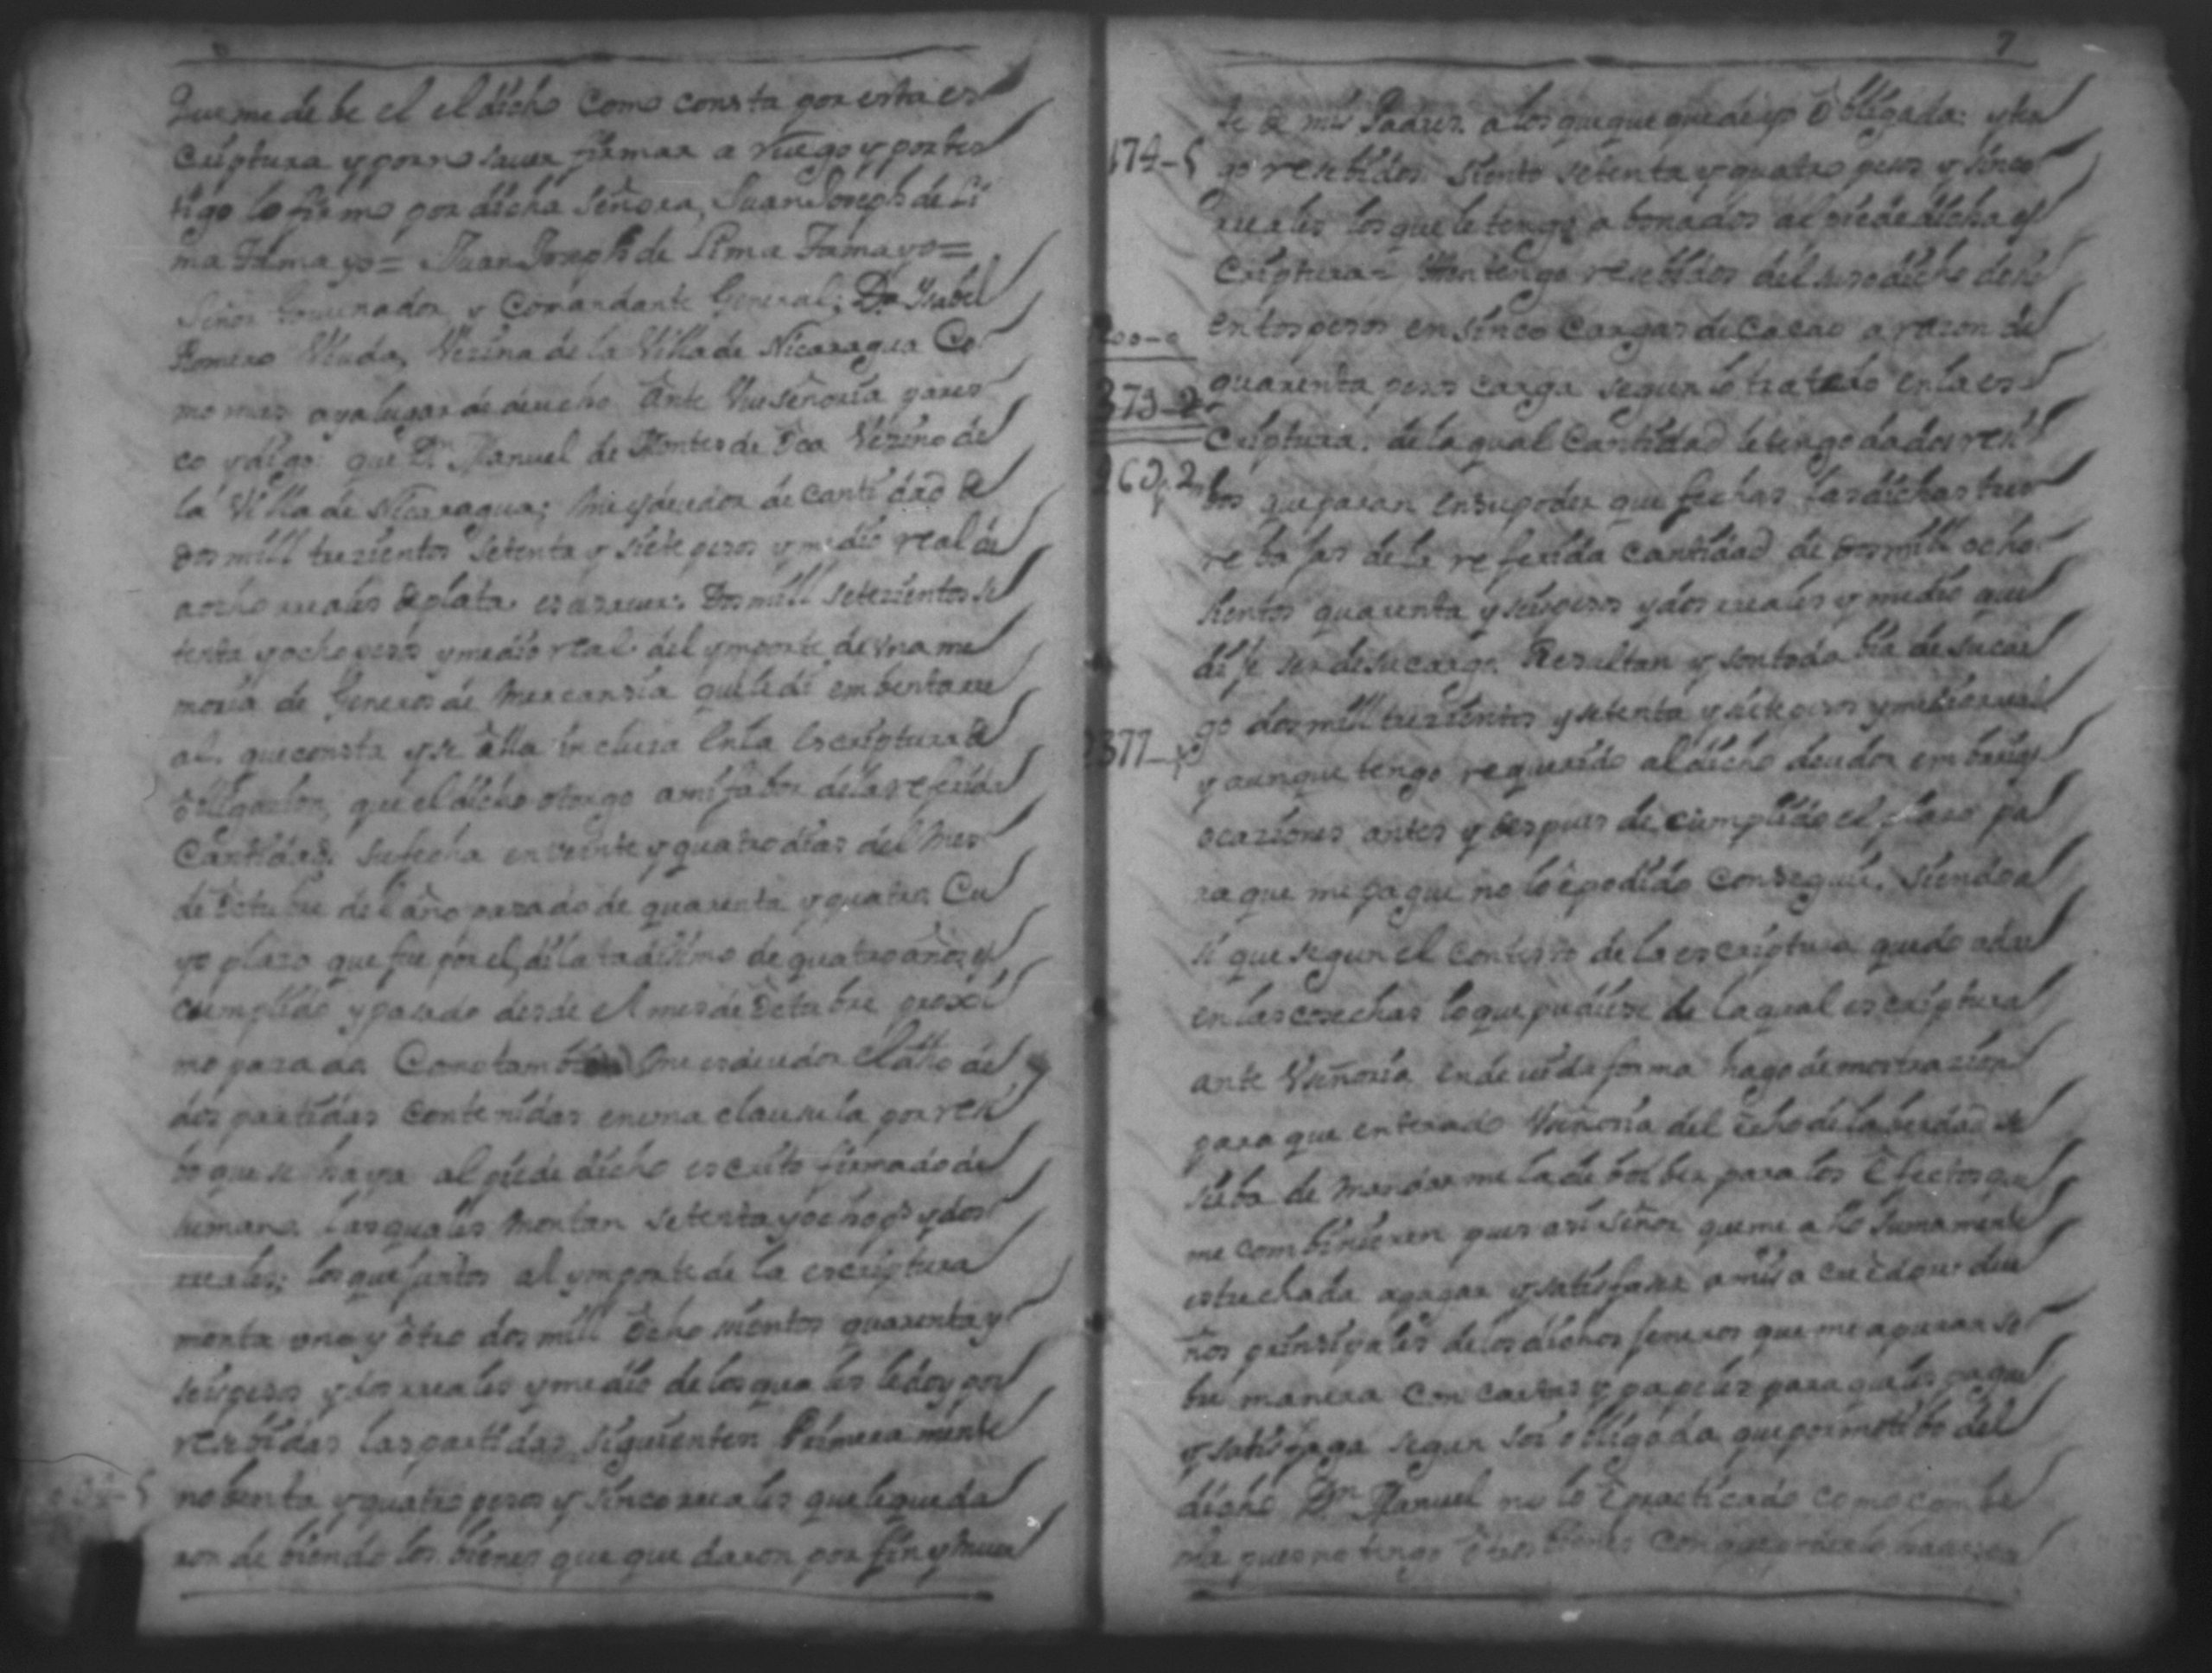 Que me de be el el dicho como consta por esta es
criptura y por no saver firmar a ruego y por tes
tigo lo firmo por dicha Señora, Juan Joseph de Li
ma Tamayo = Juan Joseph de Lima Tamayo =
Señor Governador y Comandante General; Dª Ysabel
Romero Viuda, Vezina de la Villa de Nicaragua Co
mo mas aya lugar de derecho ante Vuseñoria pares
co y digo: que Dn Manuel de Montes de Oca Vezino de
la Villa de Nicaragua; me es deudor de cantidad de
dos mill trezientos setenta y siete pesos y medio real de
a ocho reales de plata es a saver: Dos mill setezientos se
tenta y ocho pesos y medio real del ymporte de una me
moria de Generos de Mercansia que le di em benta re
al que consta y se alla inclusa en la escriptura de
obligasion, que el dicho otorgo a mi fabor de la referida
Cantidad; su fecha en veinte y quatro dias del Mes
de Octubre del año pasado de quarenta y quatro Cu
yo plaso que fue por el dilatadisimo de quatro años es
cumplido y pasado desde el mes de Octubre proxi
mo pasado Como tambien me es deudor el dho de
dos partidas contenidas en una clausula por resi
bo que se haya al pie de dicho escrito firmado de
su mano las quales montan setenta y ocho ps y dos
reales; los que juntos al ymporte de la escriptura
monta uno y otro dos mill ocho sientos quarenta y
seis pesos y dos reales y medio de los quales le doy por
resebidas las partidas siguientes Primeramente
94-5 nobenta y quatro pesos y sinco reales que le queda
ron debiendo los bienes que quedaron por fin y muer
7
te de mis Padres a los que que quede yo obligada: y ten
174-5 go resebidos siento setenta y quatro pesos y sinco
reales los que le tengo abonados al pie de dicha es
criptura = Yten tengo resebidos del susodicho dosi
200-0 entos pesos en sinco cargas de cacao a razon de
373-2 quarenta pesos carga segun lo tratado en la es
criptura. de la qual Cantidad le tengo dados resi
bos que paran en su poder que fechas las dichas tres
rebajas de la referida cantidad de dos mill ocho
sientos quarenta y seis pesos y dos reales y medio que
dije ser de su cargo. Resultan y son toda bia de su car
2377 go dos mill trezientos y setenta y siete pesos y medio real
y aunque tengo requerido al dicho deudor em barias
ocaziones antes y despues de cumplido el plaso pa
ra que me pague no lo e podido conseguir, siendo a
si que segun el contesto de la escriptura quedo a dar
en las cosechas lo que pudiese de la qual escriptura
ante Vseñoria en devida forma hago demostrazion
para que enterado Vseñoria del echo de la berdad se
sirba de mandarme la debolber para los Efectos que
me combinieren pues asi señor que me a llo sumamente
estrechada a pagar y satisfaser a mis acreedores due
ños prinsipales de los dichos Jeneros que me apuran so
bre manera con cartas y papeles para que les pague
y satisfaga segun soi obligada que por motibo del
dicho Dn Manuel no lo e practicado como conbe
nia pues no tengo otros bienes con que poderlo haser